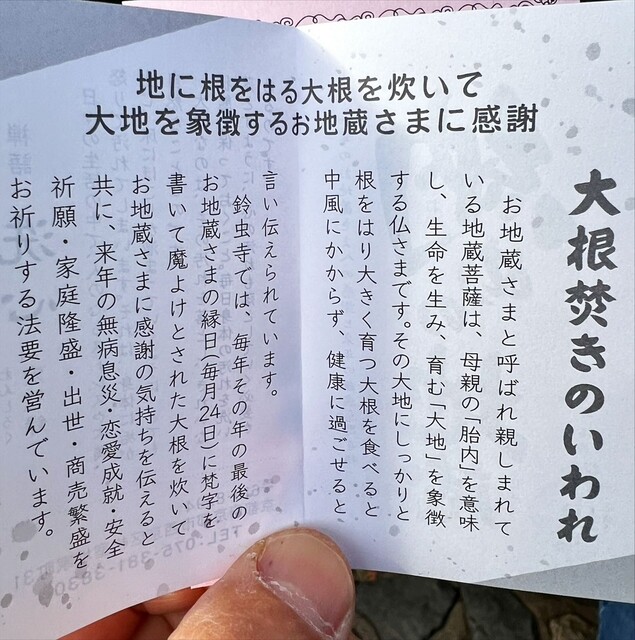 大根焚きのいわれ
地に根をはる大根を炊いて
大地を象徴するお地蔵さまに感謝
お地蔵さまと呼ばれ親しまれて
いる地蔵菩薩は、母親の「胎内」を意味
し、生命を生み、育む「大地」を象徴
する仏さまです。その大地にしっかりと
根をはり大きく育つ大根を食べると
中風にかからず、健康に過ごせると、
言い伝えられています。
鈴虫寺では、毎年その年の最後の
お地蔵さまの縁日(毎月24日)に梵字を
書いて魔よけとされた大根を炊いて
お地蔵さまに感謝の気持ちを伝えると
共に、来年の無病息災・恋愛成就・安全
祈願・家庭隆盛・出世・商売繁盛を
お祈りする法要を営んでいます。